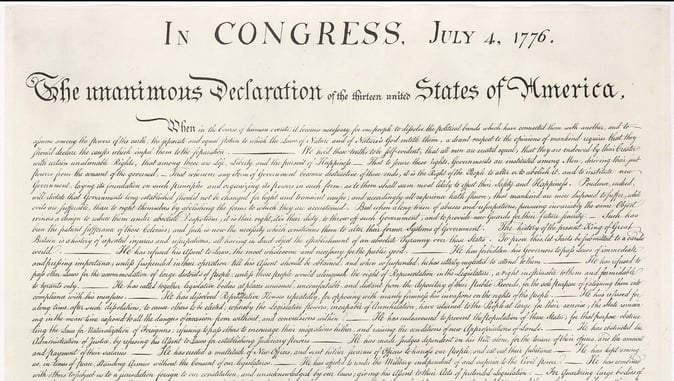 IN CONGRESS, JULY 4, 1776.
The unanimous Declaration of the thirteen united States of America,
When in the Course of human events, it becomes necessary for one people to dissolve the political bands which have connected them with another, and to
assume among the powers of the earth, the separate and equal station to which the Laws of Nature and of Nature's God entitle them, a decent respect to the opinions of mankind requires that they
should declare the causes which impel them to the separation. — We hold these truths to be self-evident, that all men are created equal, that they are endowed by their Creator
with certain unalienable Rights, that among these are Life, Liberty and the pursuit of Happiness. — That to secure these rights, Governments are instituted among Men, deriving their just
powers from the consent of the governed, — That whenever any Form of Government becomes destructive of these ends, it is the Right of the People to alter or to abolish it, and to institute new
Government, laying its foundation on such principles and organizing its powers in such form, as to them shall seem most likely to effect their Safety and Happiness. Prudence, indeed,
will dictate that Governments long established should not be changed for light and transient causes; and accordingly all experience hath shewn, that mankind are more disposed to suffer, while
evils are sufferable, than to right themselves by abolishing the forms to which they are accustomed. But when a long train of abuses and usurpations, pursuing invariably the same Object
evinces a design to reduce them under absolute Despotism, it is their right, it is their duty, to throw off such Government, and to provide new Guards for their future security. — Such has
been the patient sufferance of these Colonies; and such is now the necessity which constrains them to alter their former Systems of Government. The history of the present King of Great
Britain is a history of repeated injuries and usurpations, all having in direct object the establishment of an absolute Tyranny over these States. To prove this, let Facts be submitted to a candid
world. — He has refused his Assent to Laws, the most wholesome and necessary for the public good. — He has forbidden his Governors to pass Laws of immediate
and pressing importance, unless suspended in their operation till his Assent should be obtained; and when so suspended, he has utterly neglected to attend to them. — He has refused to
pass other Laws for the accommodation of large districts of people, unless those people would relinquish the right of Representation in the Legislature, a right inestimable to them and formidable
to tyrants only. — He has called together legislative bodies at places unusual, uncomfortable, and distant from the depository of their Public Records, for the sole purpose of fatiguing them into
compliance with his measures. — He has dissolved Representative Houses repeatedly, for opposing with manly firmness his invasions on the rights of the people. — He has refused for
a long time, after such dissolutions, to cause others to be elected; whereby the Legislative powers, incapable of Annihilation, have returned to the People at large for their exercise; the State remain-
ing in the mean time exposed to all the dangers of invasion from without, and convulsions within. — He has endeavoured to prevent the population of these States; for that purpose obstruc-
ting the Laws for Naturalization of Foreigners; refusing to pass others to encourage their migrations hither, and raising the conditions of new Appropriations of Lands. — He has obstructed the
Administration of Justice, by refusing his Assent to Laws for establishing Judiciary powers. — He has made Judges dependent on his Will alone, for the tenure of their offices, and the amount
and payment of their salaries. — He has erected a multitude of New Offices, and sent hither swarms of Officers to harrass our people, and eat out their substance. — He has kept among
us, in times of peace, Standing Armies without the Consent of our legislatures. — He has affected to render the Military independent of and superior to the Civil power. — He has combined
with others to subject us to a jurisdiction foreign to our constitution, and unacknowledged by our laws; giving his Assent to their Acts of pretended Legislation: — For Quartering large bodies of